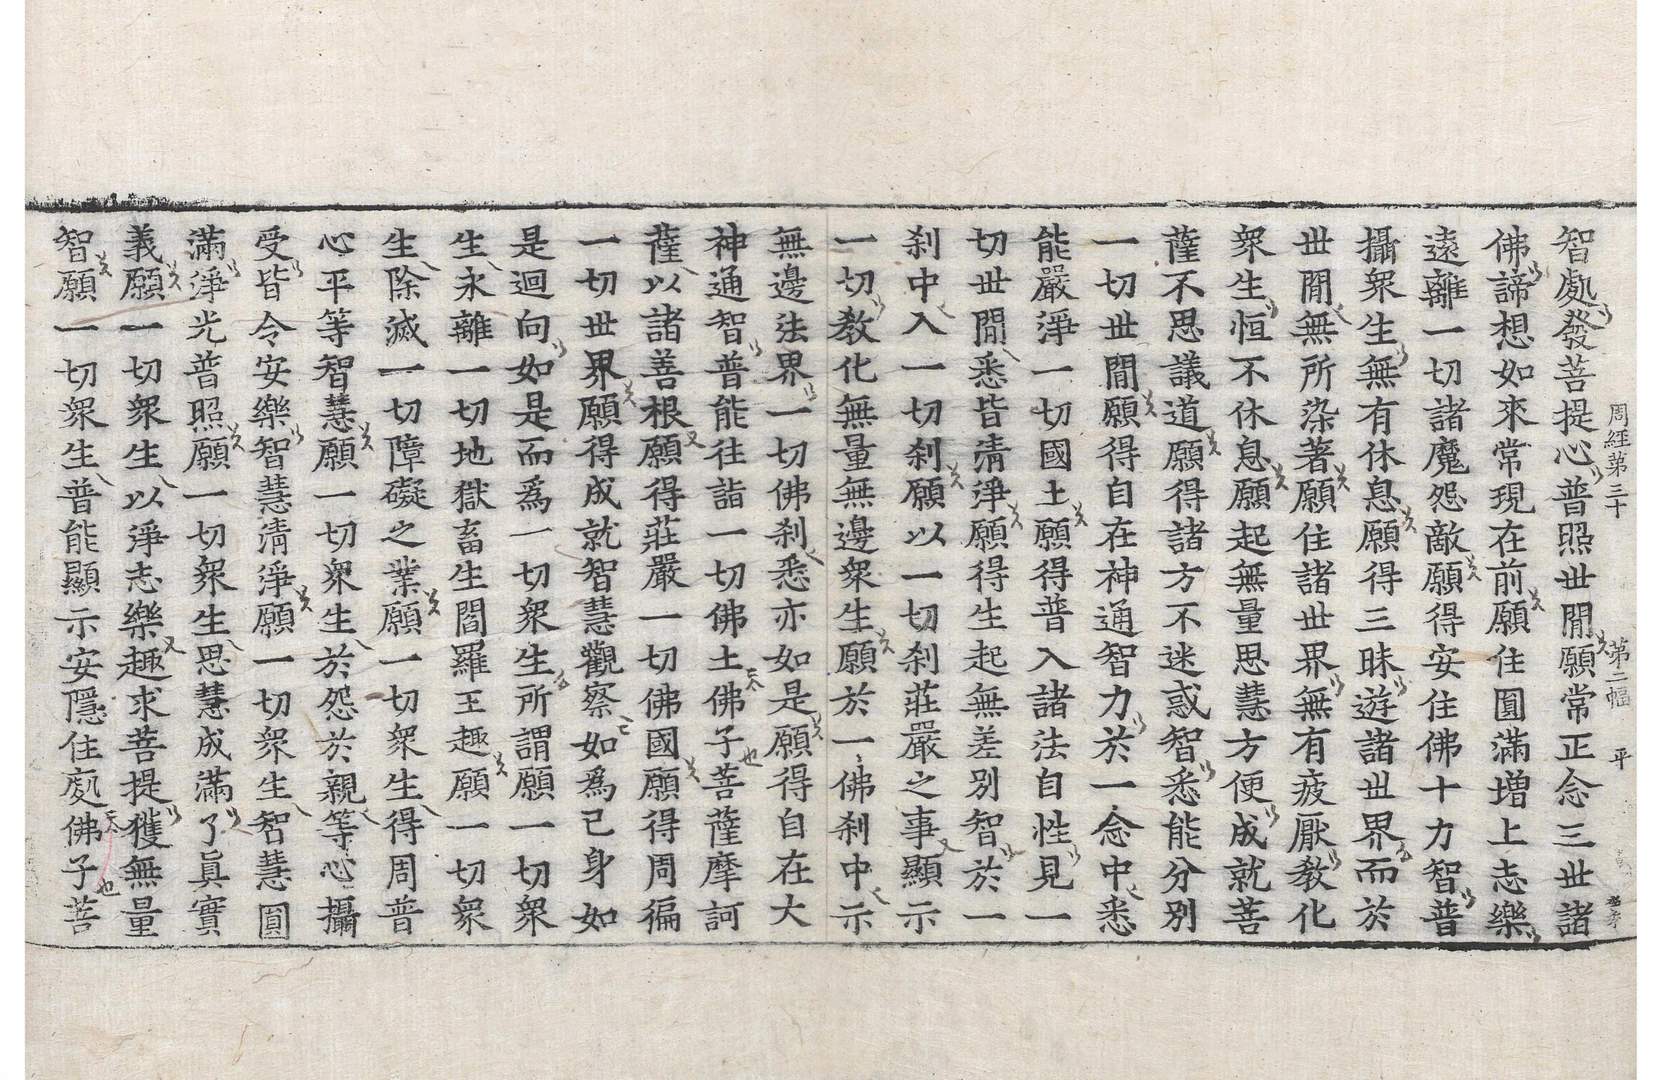 周經第三十 第二幅 平
智處發菩提心普照世間願常正念三世諸
佛諦想如來常現在前願住圓滿增上志樂
遠離一切諸魔怨敵願得安住佛十力智普
攝衆生無有休息願得三昧遊諸世界而於
世間無所染著願住諸世界無有疲厭教化
衆生恒不休息願起無量思慧方便成就菩
薩不思議道願得諸方不迷惑智悉能分別
一切世間願得自在神通智力於一念中悉
能嚴淨一切國土願得普入諸法自性見一
切世間悉皆清淨願得生起無差別智於一
刹中入一切刹願以一切刹莊嚴之事顯示
一切教化無量無邊衆生願於一佛刹中示
無邊法界一切佛刹悉亦如是願得自在大
神通智普能往詣一切佛土佛子菩薩摩訶
薩以諸善根願得莊嚴一切佛國願得周徧
一切世界願得成就智慧觀察如為己身如
是迴向如是而為一切衆生所謂願一切衆
生永離一切地獄畜生閻羅王趣願一切衆
生除滅一切障礙之業願一切衆生得周普
心平等智慧願一切衆生於怨於親等心攝
受皆令安樂智慧清淨願一切衆生智慧圓
滿淨光普照願一切衆生思慧成滿了眞實
義願一切衆生以淨志樂趣求菩提獲無量
智願一切衆生普能顯示安隱住處佛子菩